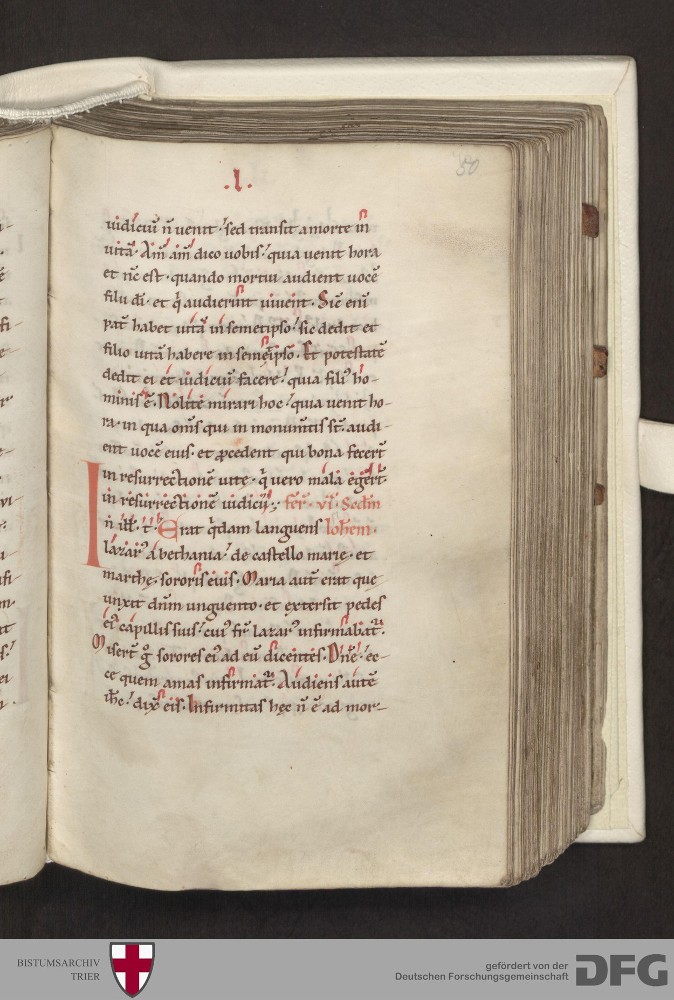 .l.
50
iudiciū n̄ uenit. sed transit a morte in
uitā. Am̄ am̄ dico uobis. quia uenit hora
et nc̄ est. quando mortui audient uocē
filii dī. et q̄ audierint uiuent. Sic̄ enī
pat̄ habet uitā in semetipso. sic dedit et
filio uitā habere in semetipso. Et potestatē
dedit ei et iudiciū facere. quia fili9 ho-
minis ē. Nolite mirari hoc. quia uenit ho-
ra. in qua om̄s qui in monumtis st̄. audi-
ent uocē eius. et ꝓcedent qui bona fecert̄
in resurrectionē uitę. q̄ uero mala egert̄
in resurrectionē iudicij. fer̄. vi. Scdm̄
In ill̄. t. Erat q̄dam languens Ioh̄em.
lazar9 a bethania. de castello marię. et
marthę. sororis eius. Maria aut̄ erat que
unxit dn̄m unguento. et extersit pedes
ei9 capillis suis. cui9 fr̄ lazar9 infirmabat̄.
Misert̄ g̊ sorores ei9 ad eū dicentes. Dn̄e. ec-
ce quem amas infirmat̄. Audiens autē
ih̄c. dix̄ eis. Infirmitas hęc n̄ ē ad mor-
BISTUMSARCHIV
TRIER
gefördert von der
Deutschen Forschungsgemeinschaft
DFG